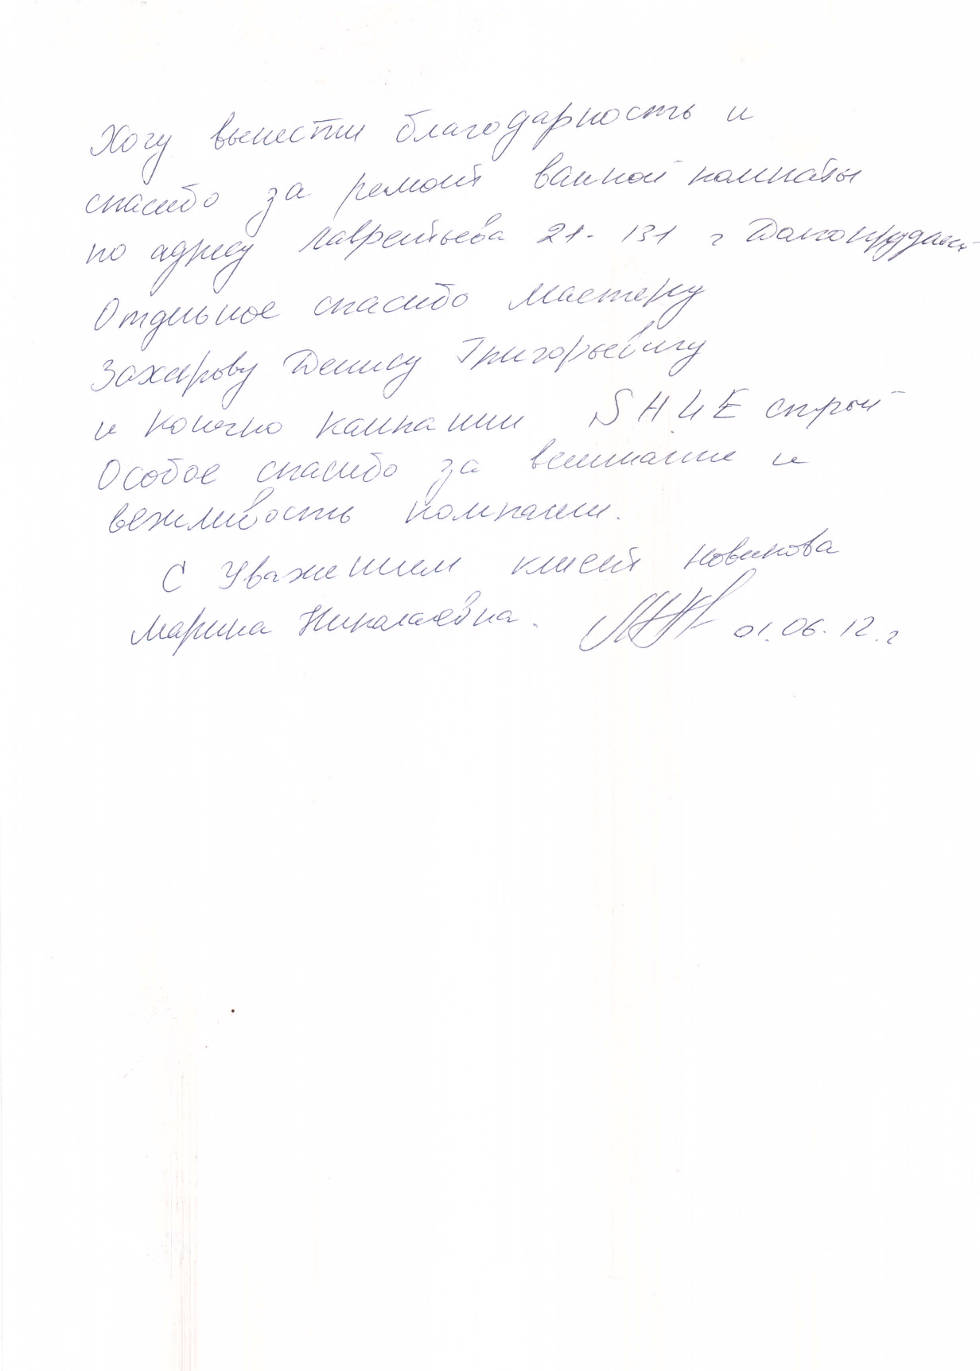 Хочу вынести благодарность и
спасибо за ремонт ванной комнаты
по адресу Лаврентьева 21-131 г
Отдельное спасибо мастеру
Захарову Денису Григорьевичу
и конечно кампании строй
Особое спасибо за внимание и
вежливость компании.
С Уважением клиент Новикова
Марина Николаевна. 01.06.12.г